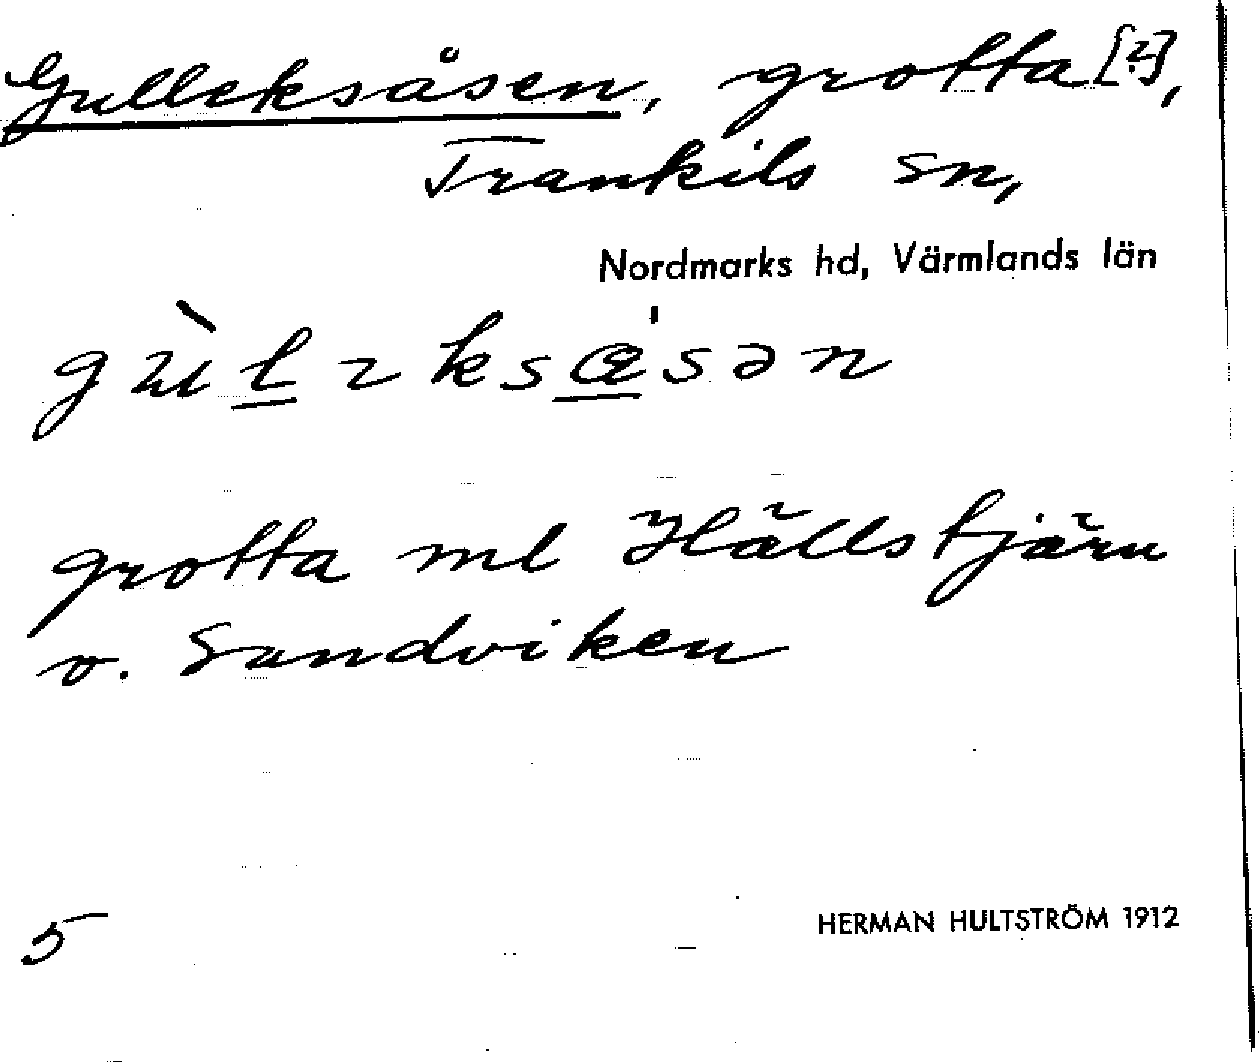 Gulleksåsen, grotta [?],
Trankils sn,
Nordmarks hd, Värmlands län
grotta ml Hällstjärn
v. Sandviken
5
HERMAN HULTSTRÖM 1912